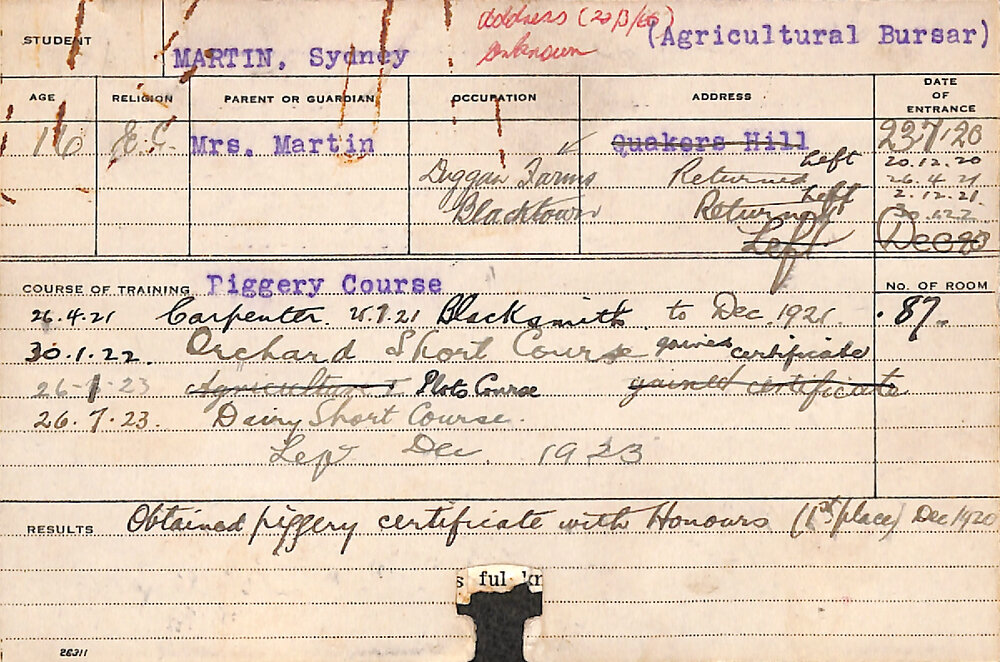 address (20/3/66)
unknown
(Agricultural Bursar)
STUDENT
MARTIN, Sydney
AGE RELIGION PARENT OR GUARDIAN OCCUPATION ADDRESS DATE OF ENTRANCE
16 Mrs. Martin Quakers Hill 23.7.20
Left 20.12.20
Duggan Farms Returned 26.4.21
Left 2.12.21.
Blacktown Returned 30.1.22
Left Dec 23
COURSE OF TRAINING Piggery Course NO. OF ROOM
26.4.21 Carpenter. Blacksmith to Dec. 1921. 87.
30.1.22. Orchard Short Course gained certificate
26-1-23 Agriculture & Plots Course gained certificate
26.7.23. Dairy Short Course.
Left Dec. 1923
RESULTS Obtained piggery certificate with Honours (1st place) Dec 1920
s ful kn
26311